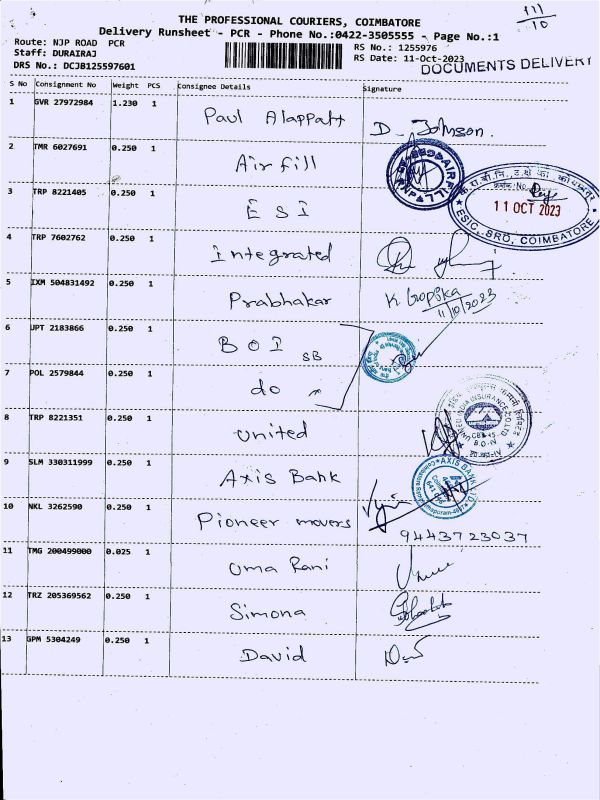 111
10
THE PROFESSIONAL COURIERS, COIMBATORE
Delivery Runsheet - PCR - Phone No.:0422-3505555 - Page No.:1
Route: NJP ROAD PCR
Staff: DURAIRAJ
DRS No.: DCJB125597601
RS No.: 1255976
RS Date: 11-Oct-2023
DOCUMENTS DELIVERY
S No Consignment No Weight PCS Consignee Details Signature
1 GVR 27972984 1.230 1 Paul Alappatt D. Johnson.
2 TMR 6027691 0.250 1 Air fill
3 TRP 8221405 0.250 1 ESI
11 OCT 2023
ESIC, SRO, COIMBATORE
4 TRP 7602762 0.250 1 Integrated
5 IXM 504831492 0.250 1 Prabhakar K. Gopika
11/10/2023
6 JPT 2183866 0.250 1 BOI SB
7 POL 2579844 0.250 1 do
8 TRP 8221351 0.250 1 United
9 SLM 330311999 0.250 1 Axis Bank
AXIS BANK LTD
10 NKL 3262590 0.250 1 Pioneer movers
9443723037
11 TMG 200499000 0.025 1 Uma Rani
12 TRZ 205369562 0.250 1 Simona
13 GPM 5304249 0.250 1 David